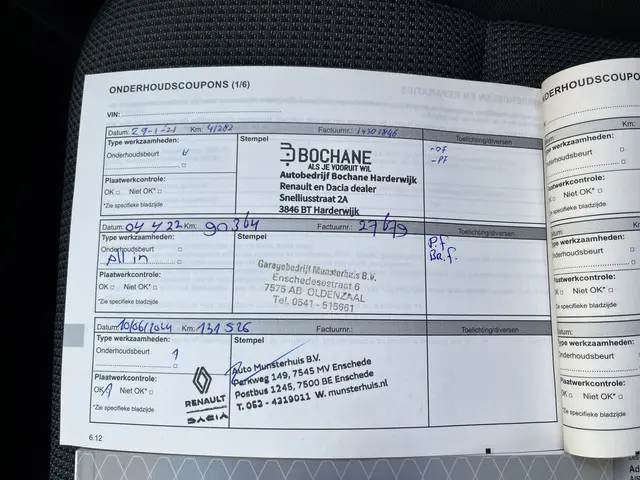 ONDERHOUDSCOUPONS (1/6)
VIN:
Datum: 29-1-21 Km: 41282 Factuurnr.: 14301846
Type werkzaamheden:
Onderhoudsbeurt
Plaatwerkcontrole:
OK Niet OK*
*Zie specifieke bladzijde
Stempel
BOCHANE
ALS JE VOORUIT WIL
Autobedrijf Bochane Harderwijk
Renault en Dacia dealer
Snelliusstraat 2A
3846 BT Harderwijk
Toelichting/diversen
-OF
-PF
Datum: 04 4 22 Km: 90364 Factuurnr.: 27679
Type werkzaamheden:
Onderhoudsbeurt
All in
Plaatwerkcontrole:
OK Niet OK*
*Zie specifieke bladzijde
Stempel
Garagebedrijf Munsterhuis B.V.
Enschedesestraat 6
7575 AB OLDENZAAL
Tel. 0541 - 515661
Toelichting/diversen
P.f
Ba.f.
Datum: 10/06/2024 Km: 131 526 Factuurnr.:
Type werkzaamheden:
Onderhoudsbeurt 1
Plaatwerkcontrole:
OK Niet OK*
*Zie specifieke bladzijde
Stempel
RENAULT
DACIA
Auto Munsterhuis B.V.
Parkweg 149, 7545 MV Enschede
Postbus 1245, 7500 BE Enschede
T. 053 - 4319011 W. munsterhuis.nl
Toelichting/diversen
6.12
ONDERHOUDSCOUPONS
Datum:
Type werkzaamheden:
Onderhoudsbeurt
Plaatwerkcontrole:
OK Niet OK*
*Zie specifieke bladzijde
Datum:
Type werkzaamheden:
Onderhoudsbeurt
Plaatwerkcontrole:
OK Niet OK*
*Zie specifieke bladzijde
Datum:
Type werkzaamheden:
Onderhoudsbeurt
Plaatwerkcontrole:
OK Niet OK*
*Zie specifieke bladzijde